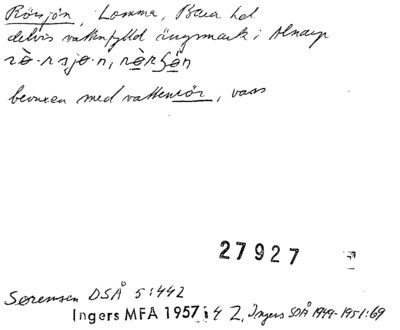 Rörsjön, Lomma, Bara hd
delvis vattenfylld ängsmark i Alnarp
bevuxen med vattenrör, vass
27927
Sørensen DSÅ 5:442
Ingers MFA 1957 i 4 2, Ingers SOÅ 1949-1951:69